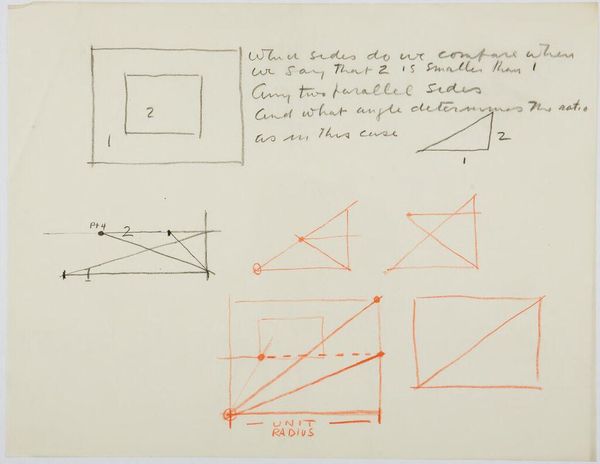 Which sides do we compare when
we say that 2 is smaller than 1
Any two parallel sides
And what angle determines the ratio
as in this case
2
1
2
1
Pt 4
2
1
UNIT
RADIUS